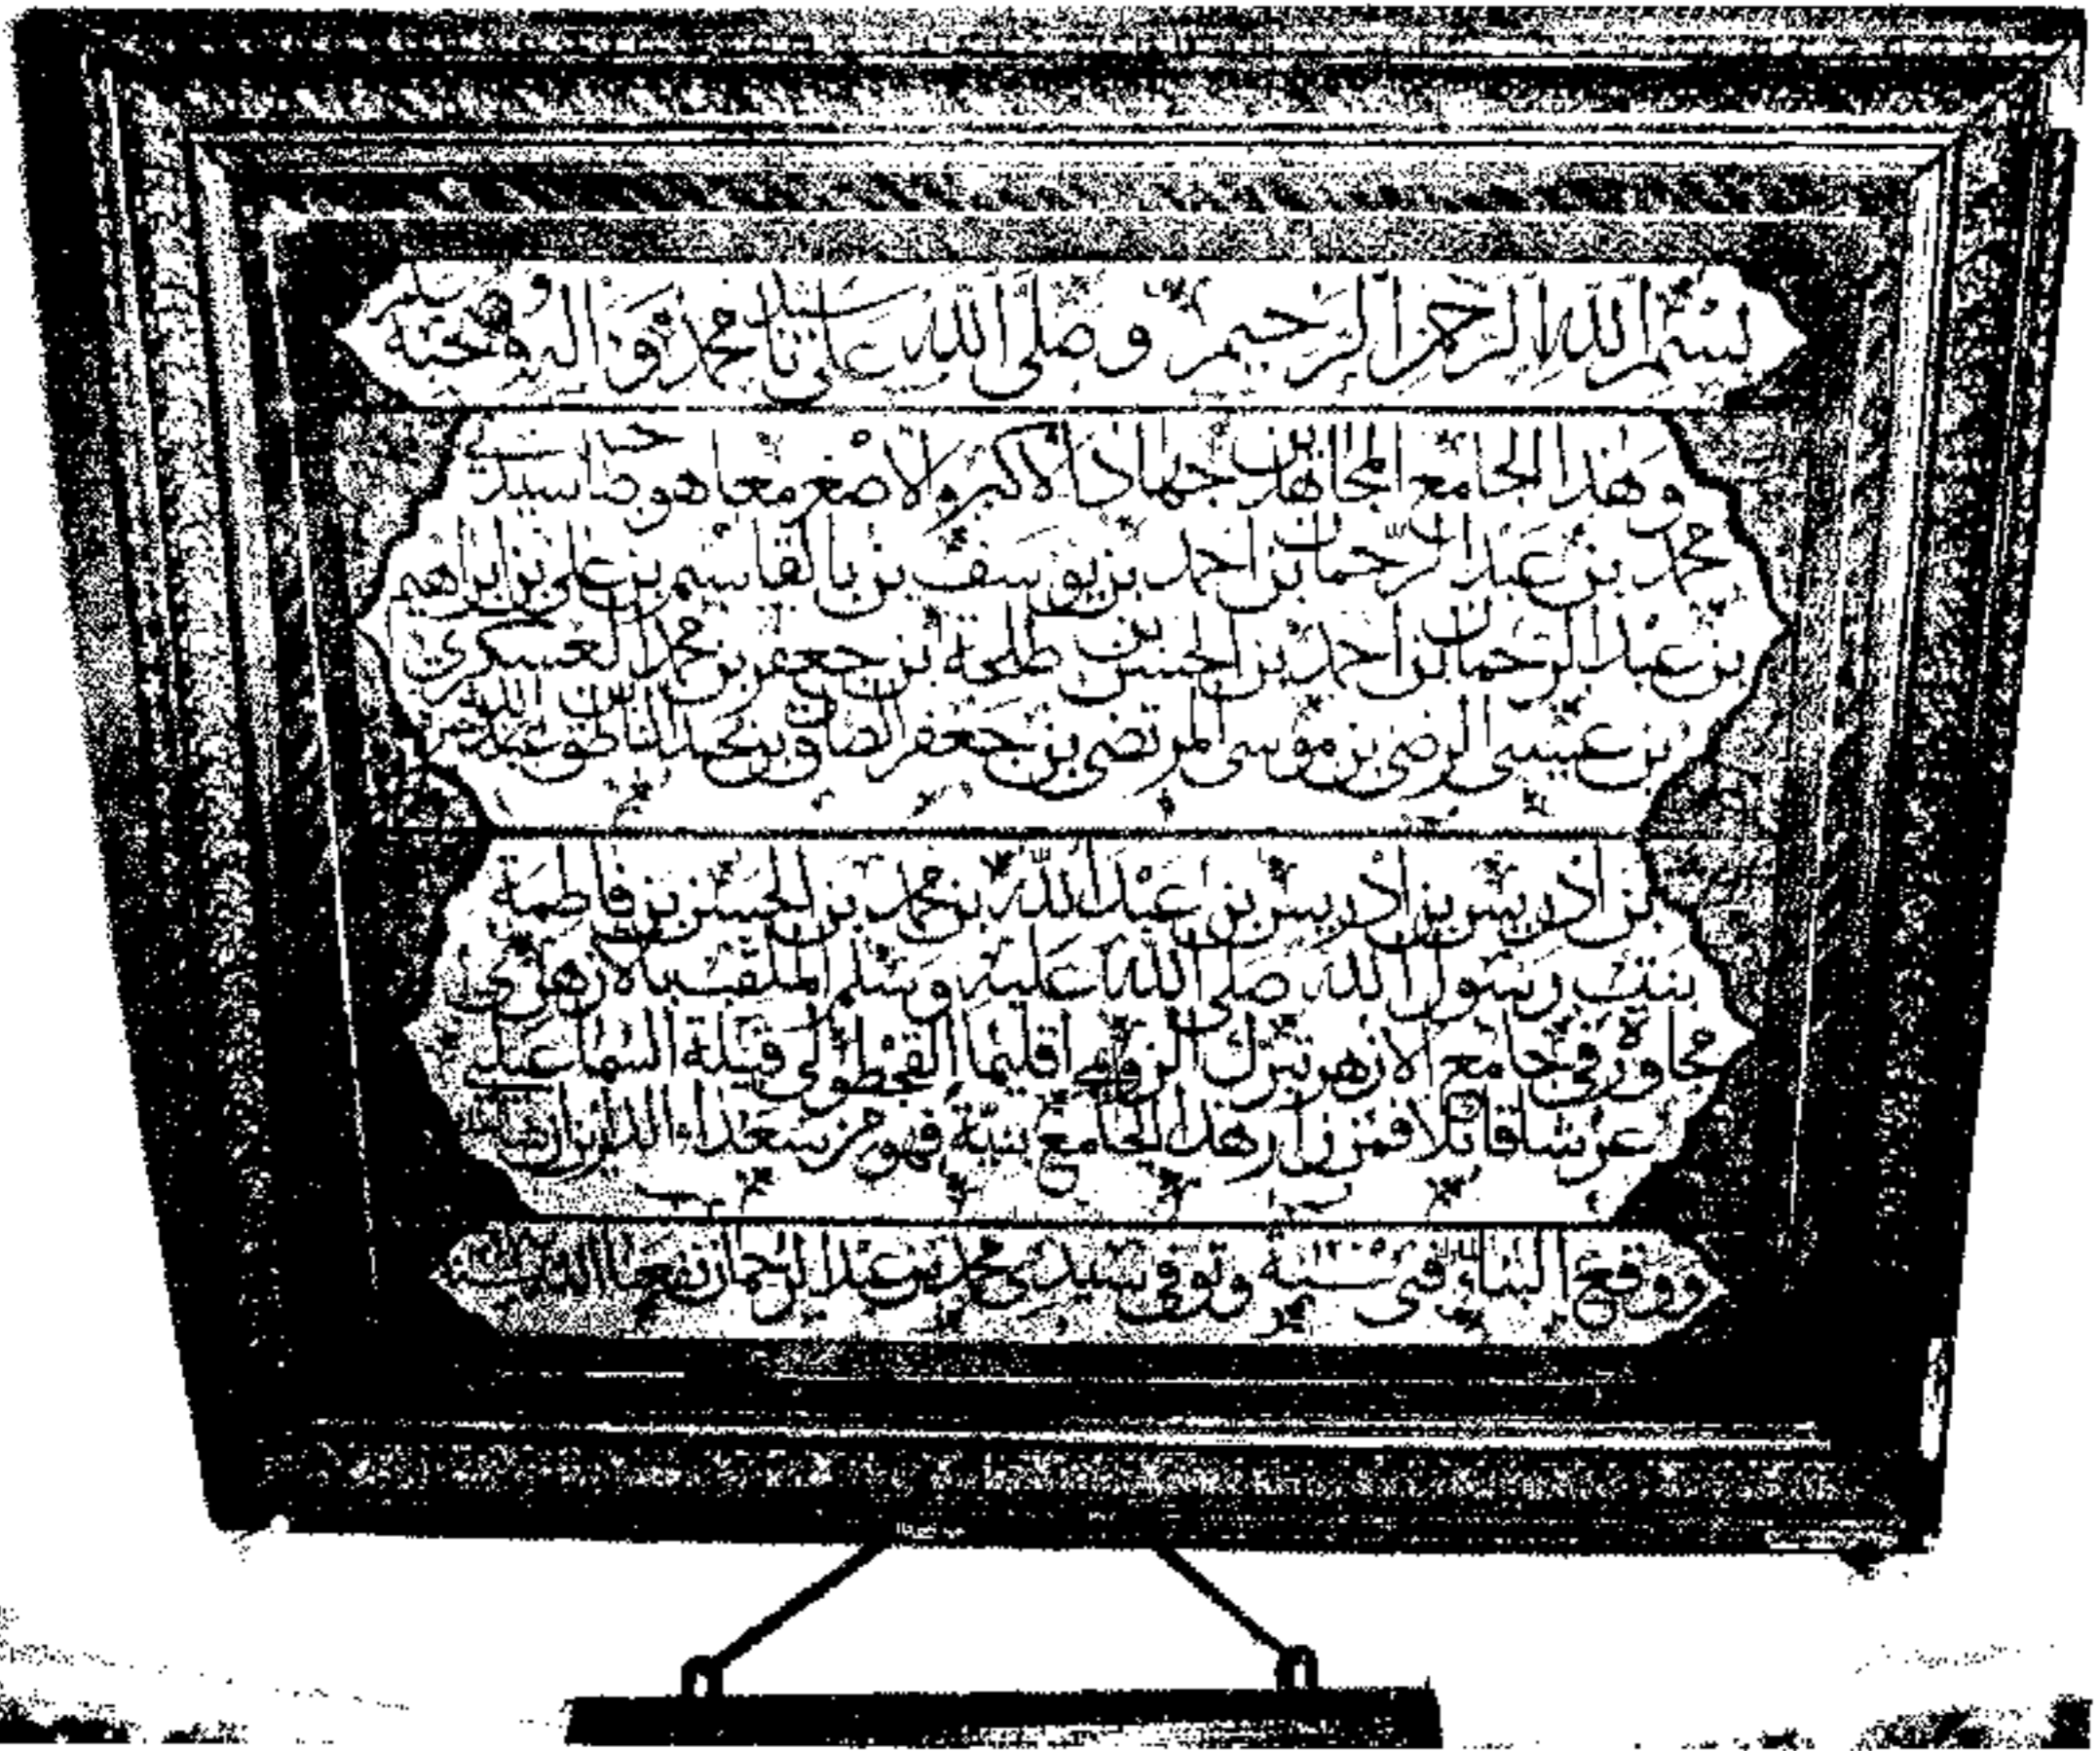 بسم الله الرحمن الرحيم وصلى الله على سيدنا محمد وآله وصحبه وسلم
وهذا الجامع المجاهدين جهاد الاكبر والاصغر معا هو صاحب سيدة
محمد بن عبد الرحمان بن احمد بن يوسف بن بالقاسم بن علي بن ابراهيم
بن عبد الرحمان بن احمد بن الحسن بن طلحة بن جعفر بن محمد العسكري
بن عيسى الرضى بن موسى المرتضى بن جعفر الصادق بن محمد الناطق بن عبد الله
بن ادريس بن ادريس بن عبد الله بن محمد بن الحسن بن فاطمة
بنت رسول الله صلى الله عليه وسلم الملقب بالازهري
مجاورة في جامع الازهر ترك الزوج اقليما القجطولي قبلة السماعيلي
عرشا قائلا فمن زار هذا الجامع بنية فهو من سعداء الدارين
ووقع البناء في سنة وتوفي سيدي محمد بن عبد الرحمان نفعنا الله